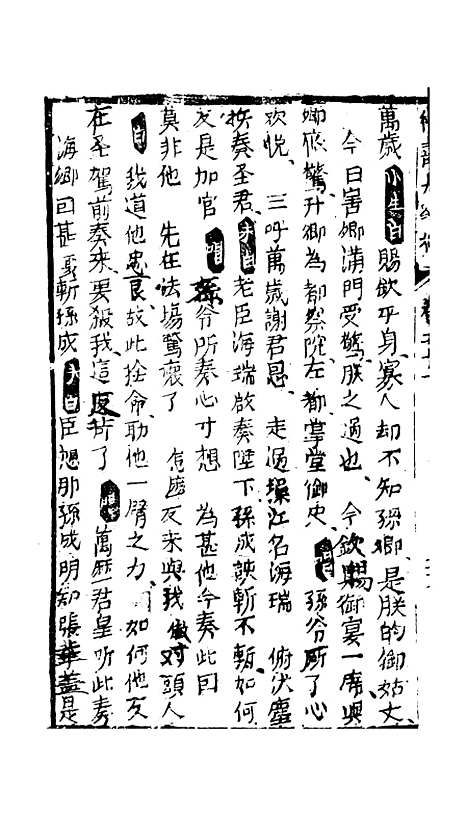 萬歲 小生白 賜欽平身寡人却不知孫卿是朕的御姑丈
今日害卿滿門受驚朕之過也 今欽賜御宴一席與
卿底驚升卿為都察院左都掌堂御史 唱 孫爷所了心
欢悅 三呼萬歲謝君恩 走過璪江名海瑞 俯伏塵
埃奏圣君 外白 老臣海瑞啟奏陛下孫成誤斬不斬如何
反是加官 唱 孫爷所奏心寸想 為甚他今奏此囙
莫非他 先在法塲驚壞了 怎庅反来與我做对頭人
白 我道他忠良故此拴命助他一臂之力 如何他反
在圣駕前奏来要殺我這
萬歴君皇听此奏
海卿囙甚要斬孫成 外白 臣想那孫成明知張華蓋是